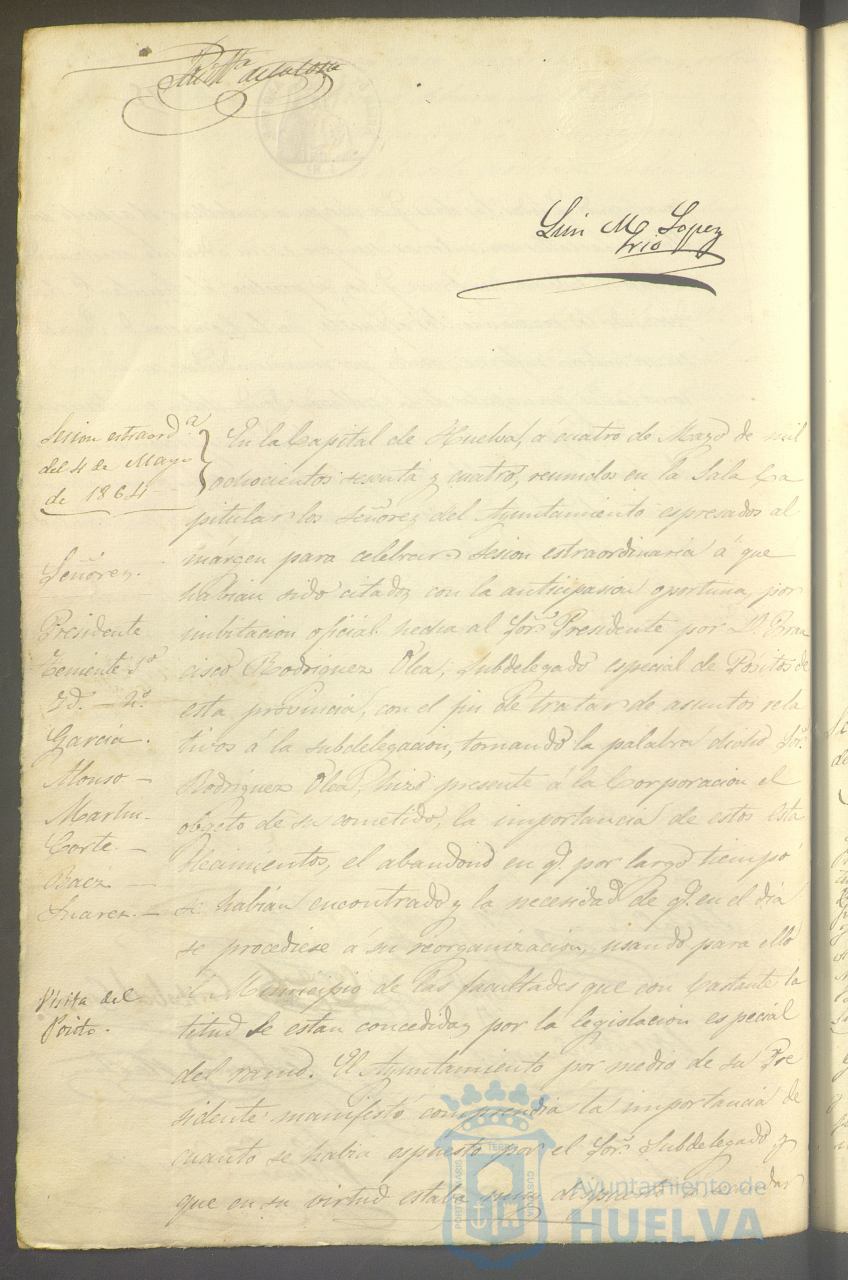 Luis M. Lopez
srio
Sesion estraord.ª
del 4 de Mayo
de 1864
Señores.
Presidente
Teniente 1º
Yd. - 2º.
Garcia.
Alonso -
Martin -
Corte. -
Baez -
Suarez. -
Visita del
Posito.
En la Capital de Huelva, á cuatro de Mayo de mil
ochocientos sesenta y cuatro, reunidos en la Sala Ca
pitular los Señores del Ayuntamiento espresados al
márgen para celebrar sesion estraordinaria á que
habian sido citados con la anticipasion oportuna, por
imbitacion oficial hecha al Sor. Presidente por D. Fran
cisco Rodriguez Olea, Subdelegado especial de Pósitos de
esta provincia, con el fin de tratar de asuntos rela
tivos á la subdelegacion, tomando la palabra dicho Sor.
Rodriguez Olea, hizo presente á la Corporacion el
objeto de su cometido, la importancia de estos esta
blecimientos, el abandono en q.e por largo tiempo
se habian encontrado y la necesidad de q.e en el dia
se procediese á su reorganizacion, usando para ello
el Municipio de las facultades que con bastante la
titud le estan concedidas por la legislacion especial
del ramo. El Ayuntamiento por medio de su Pre
sidente manifestó comprendia la importancia de
cuanto se habia espuesto por el Sor. Subdelegado y
que en su virtud estaba muy
PORTUS MARIS
TERRAE
CUSTODIA
Ayuntamiento de
HUELVA